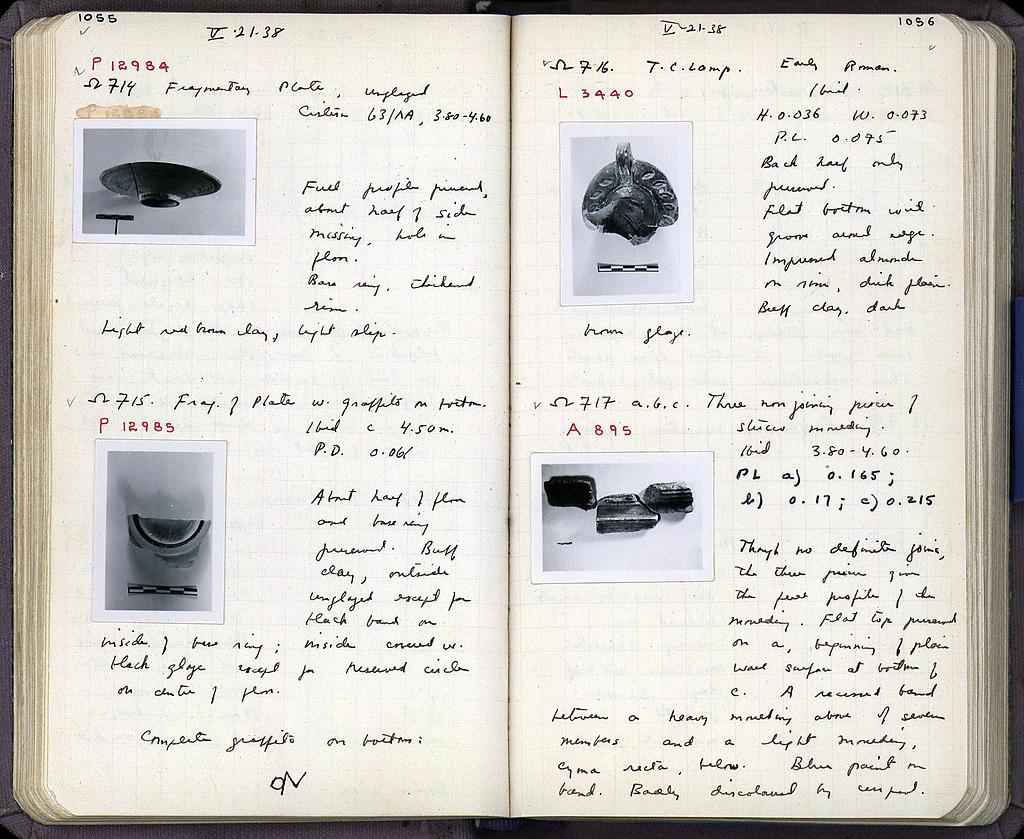 1055
V·21·38
P 12984
Ω 714 Fragmentary Plate, unglazed
Cistern 63/ΛΑ, 3.80-4.60
Full profile preserved,
about half of side
missing, hole in
floor.
Base ring, thickened
rim.
Light red brown clay, light slip.
Ω 715. Frag. of Plate w. graffito on bottom.
P 12985
Ibid c 4.50 m.
P.D. 0.061
About half of floor
and base ring
preserved. Buff
clay, outside
unglazed except for
black band on
inside of base ring; inside covered w.
black glaze except for reserved circle
on centre of floor.
Complete graffito on bottom:
1056
V-21-38
Ω 716. T.C. Lamp. Early Roman.
L 3440
Ibid.
H. 0.036 W. 0.073
P.L. 0.095
Back half only
preserved.
Flat bottom with
groove around edge.
Impressed almonds
on rim, disk plain.
Buff clay, dark
brown glaze.
Ω 717 a.b.c. Three non joining pieces of
A 895
stucco moulding
Ibid 3.80-4.60.
PL a) 0.165;
b) 0.17; c) 0.215
Though no definite joins,
the three pieces give
the full profile of the
moulding. Flat top preserved
on a, beginning of plain
wall surface at bottom of
c. A recessed band
between a heavy moulding above of seven
members and a light moulding,
cyma recta, below. Blue paint on
band. Badly discoloured by cesspool.